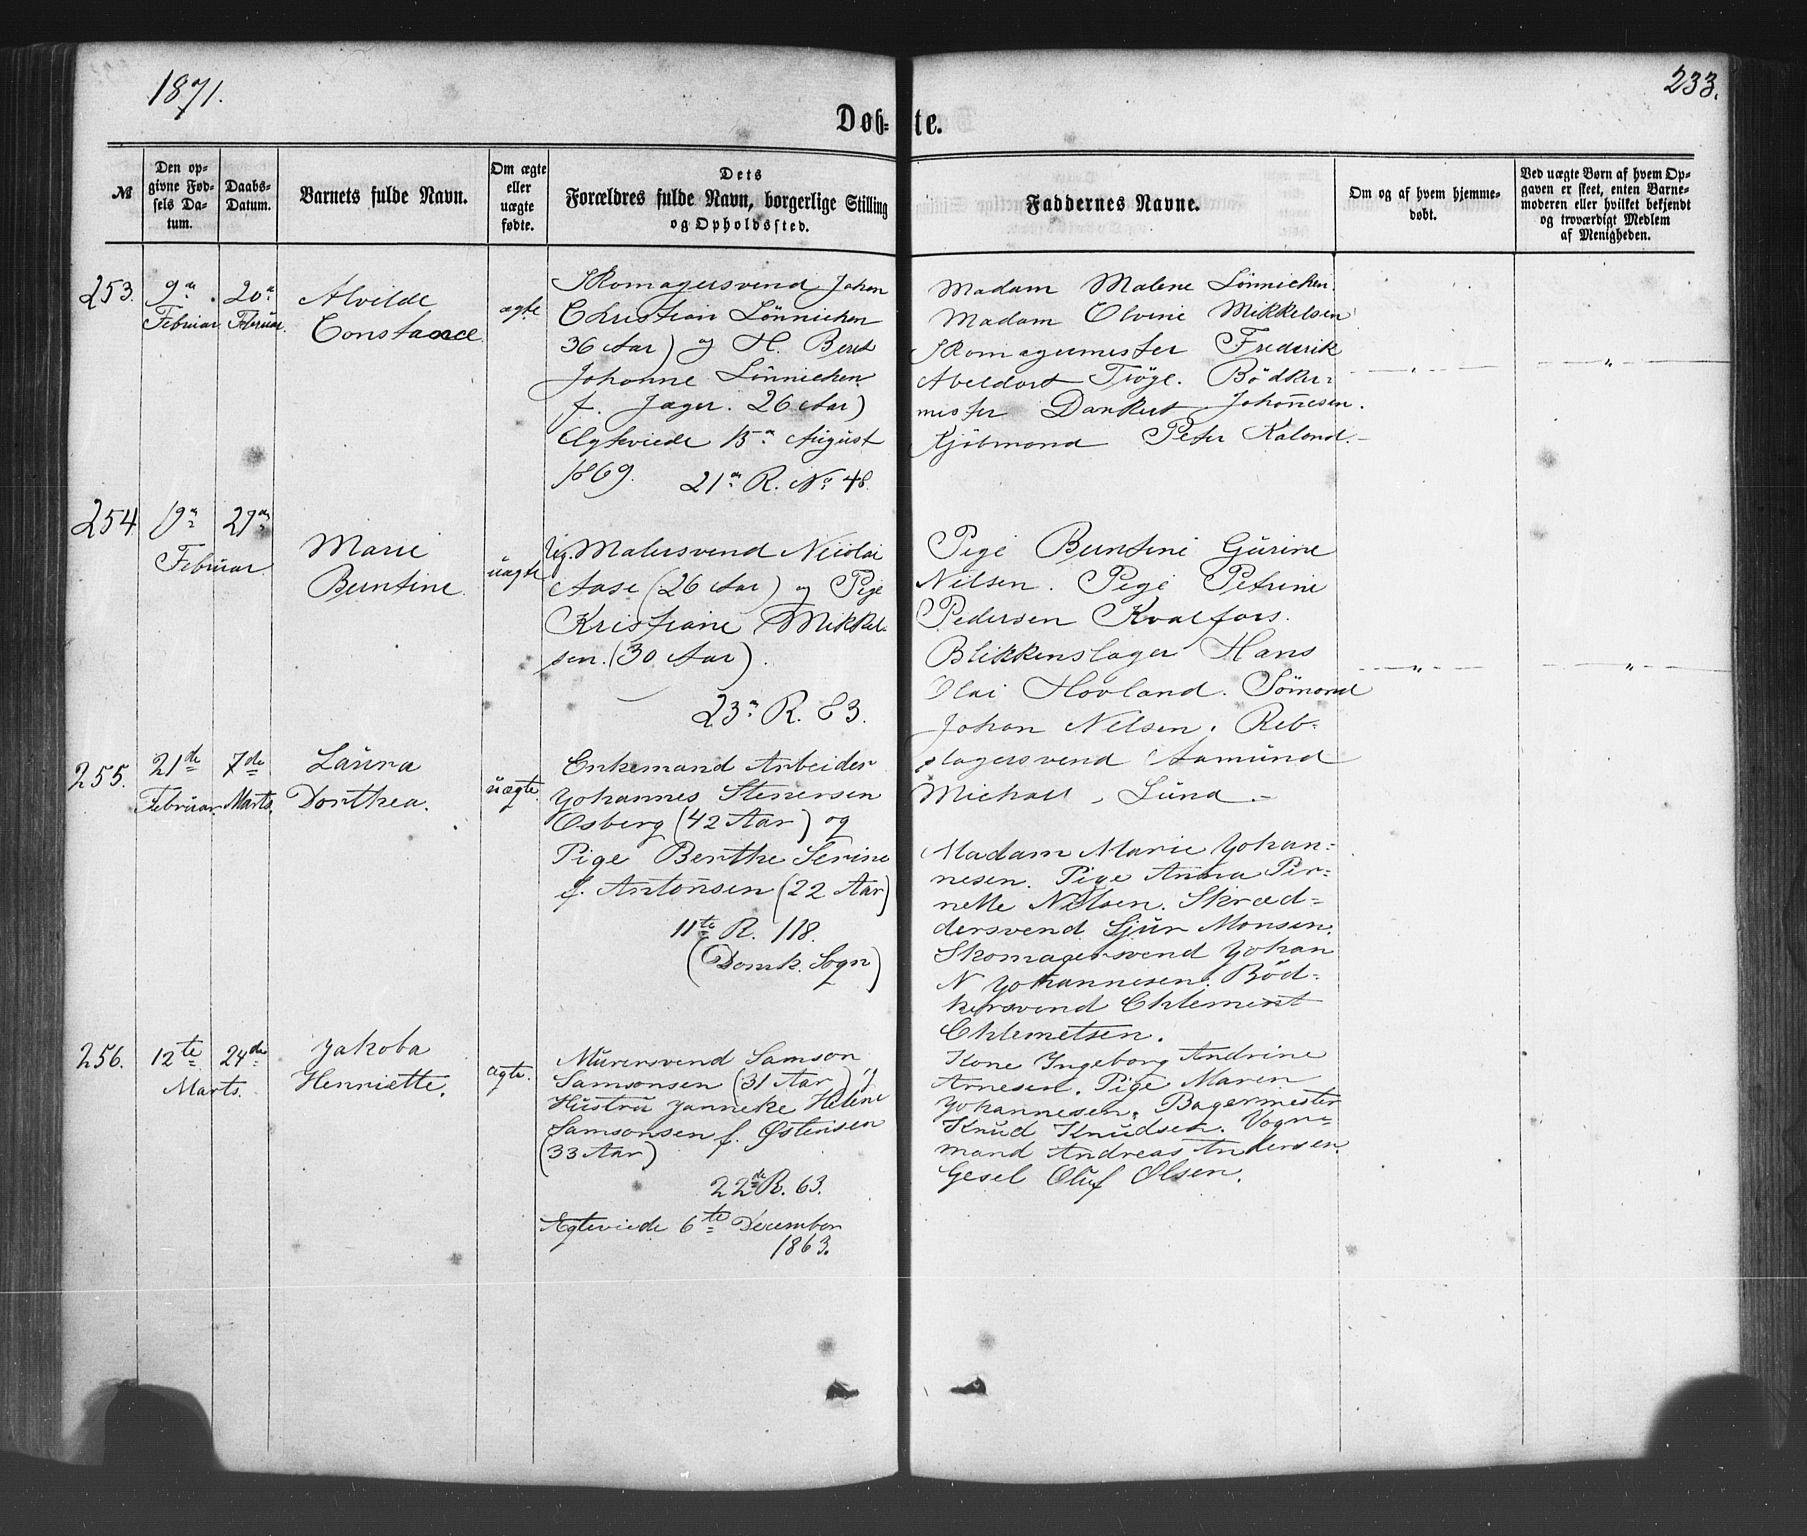 1871.
233.
Døb-te.
№
Den op-
givne Fød-
sels Da-
tum.
Daabs-
Datum.
Barnets fulde Navn.
Om ægte
eller
uægte
fødte.
Dets
Forældres fulde Navn, borgerlige Stilling
og Opholdssted.
Faddernes Navne.
Om og af hvem hjemme-
døbt.
Ved uægte Børn af hvem Op-
gaven er skeet, enten Barne-
moderen eller hvilket bekjendt
og troværdigt Medlem
af Menigheden.
253.
9de
Februar
20de
Februar
Alvilde
Constance
ægte
Skomagersvend Johan
Christian Lönnicken
36 Aar) og H. Beret
Johanne Lönnicken
f. Jæger. 26 Aar)
Ægteviede 15de August
1869. 21de R. No 48
Madam Malene Lönnicken.
Madam Olvine Mikkelsen
Skomagermester Frederik
Abeldort Tröge. Bödker-
mester Dankert Johannesen.
Kjöbmand Peter Kaland.
254
Februar
29de
Marie
Berntine
uægte
Ug. Malersvend Nicolai
Aase (26 Aar) og Pige
Kristiane Mikkel-
sen. (30 Aar).
23de R. 83.
Pige Berntine Gurine
Nilsen. Pige Petrine
Pedersen Kvalfors.
Blikkenslager Hans
Olai Hovland. Sömand
Johan Nilsen. Reb-
slagersvend Aamund
Michael Lund.
255.
21de
Februar.
7de
Marts.
Laura
Dorthea.
uægte.
Enkemand Arbeider
Johannes Stenersen
Osberg (42 Aar) og
Pige Berthe Serine
f. Antonsen (22 Aar)
11te R. 118.
(Domk. Sogn)
Madam Marie Johan-
nesen. Pige Anna Per-
nelle Nilsen. Skræd-
dersvend Sjur Monsen.
Skomagersvend Johan
N Johannesen. Böd-
kersvend Chlement
Chlemetsen.
256.
12te
Marts.
24de
Jakoba
Henriette.
ægte.
Murersvend Samson
Samsonsen (31 Aar) og
Hustru Janneke Helene
Samsonsen f. Østensen
(33 Aar)
22de R. 63.
Ægteviede 6te December
1863.
Kone Ingeborg Andrine
Arnesen. Pige Maren
Johannesen. Bagermester
Knud Knudsen. Vogn-
mand Andreas Andersen.
Gesel Oluf Olsen.